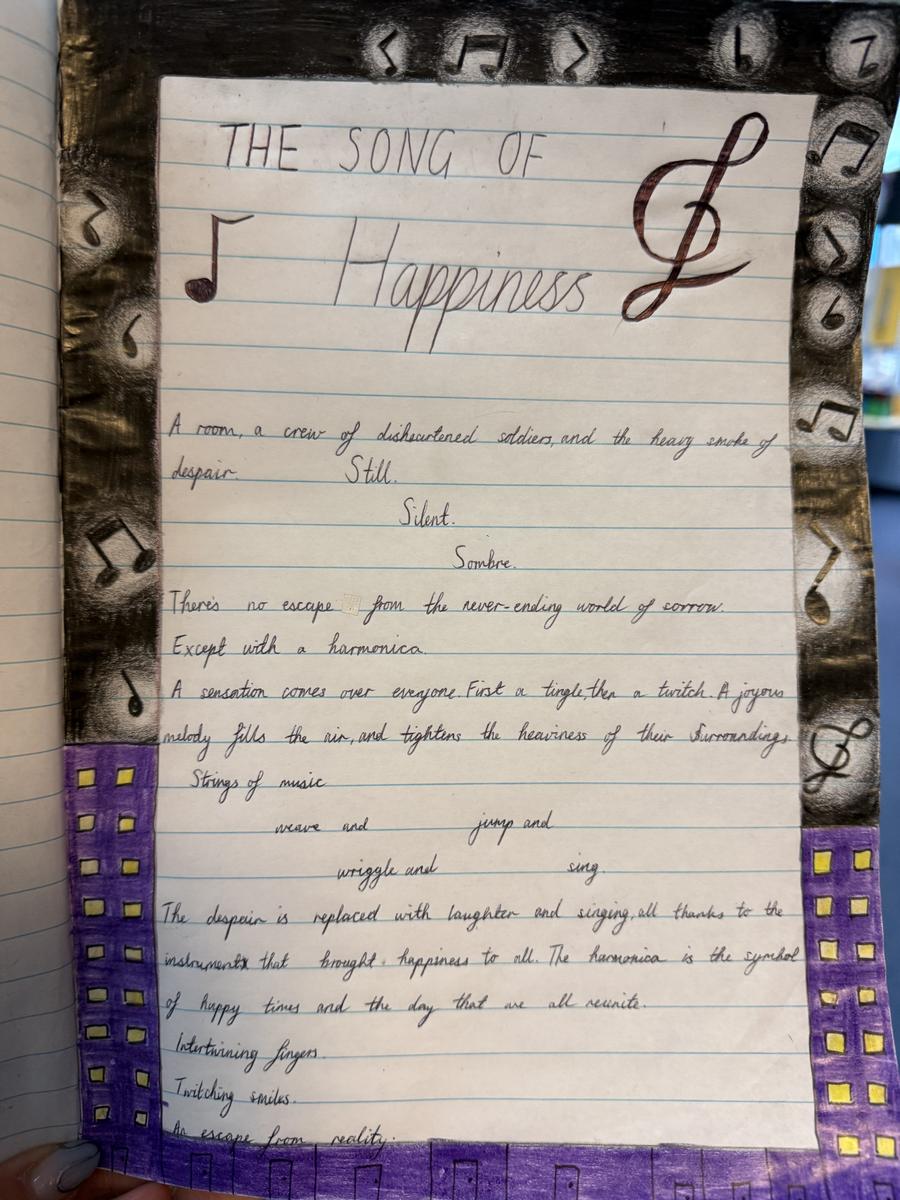 THE SONG OF
Happiness
A room, a crew of disheartened soldiers, and the heavy smoke of
despair. Still.
Silent.
Sombre.
There's no escape from the never-ending world of sorrow.
Except with a harmonica.
A sensation comes over everyone. First a tingle, then a twitch. A joyous
melody fills the air, and tightens the heaviness of their surroundings.
Strings of music
weave and jump and
wriggle and sing.
The despair is replaced with laughter and singing, all thanks to the
instruments that brought happiness to all. The harmonica is the symbol
of happy times and the day that we all reunite.
Intertwining fingers.
Twitching smiles.
An escape from reality.